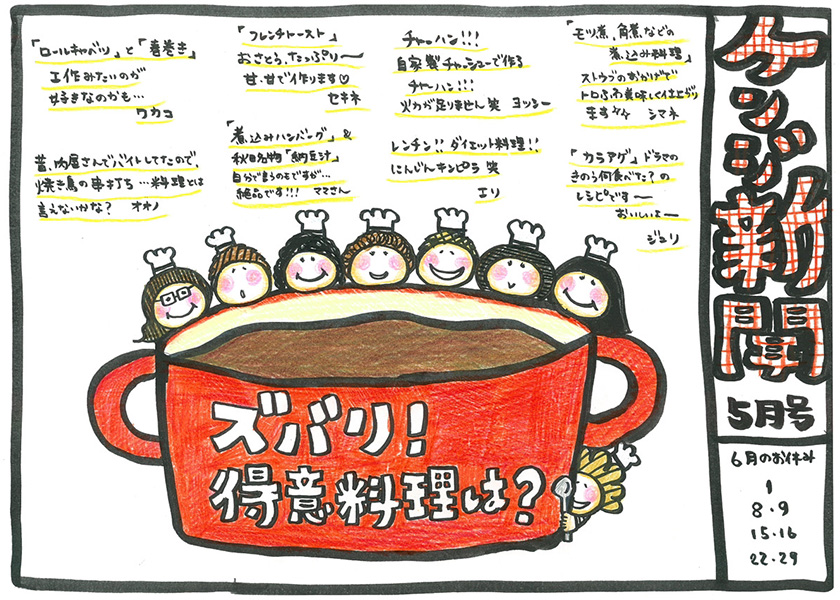 ケンジ新聞
5月号
6月のお休み
1
8・9
15・16
22・29
「モツ煮、角煮などの
煮込み料理」
ストウブのおかげで
トロふわ美味しく仕上がり
ます シマネ
「カラアゲ」ドラマの
きのう何食べた?の
レシピです〜
おいしいよ〜
ジュリ
チャーハン!!!
自家製チャーシューで作る
チャーハン!!!
火力が足りません笑 ヨッシー
レンチン!!ダイエット料理!!
にんじんキンピラ笑
エリ
「フレンチトースト」
おさとう、たっぷり〜
甘、甘で作ります♡
セキネ
「煮込みハンバーグ」&
秋田名物「納豆汁」
自分で言うのもですが…
絶品です!!! ママさん
「ロールキャベツ」と「春巻き」
工作みたいのが
好きなのかも…
ワカコ
昔、肉屋さんでバイトしてたので、
焼き鳥の串打ち…料理とは
言えないかな? オオノ
ズバリ!
得意料理は?